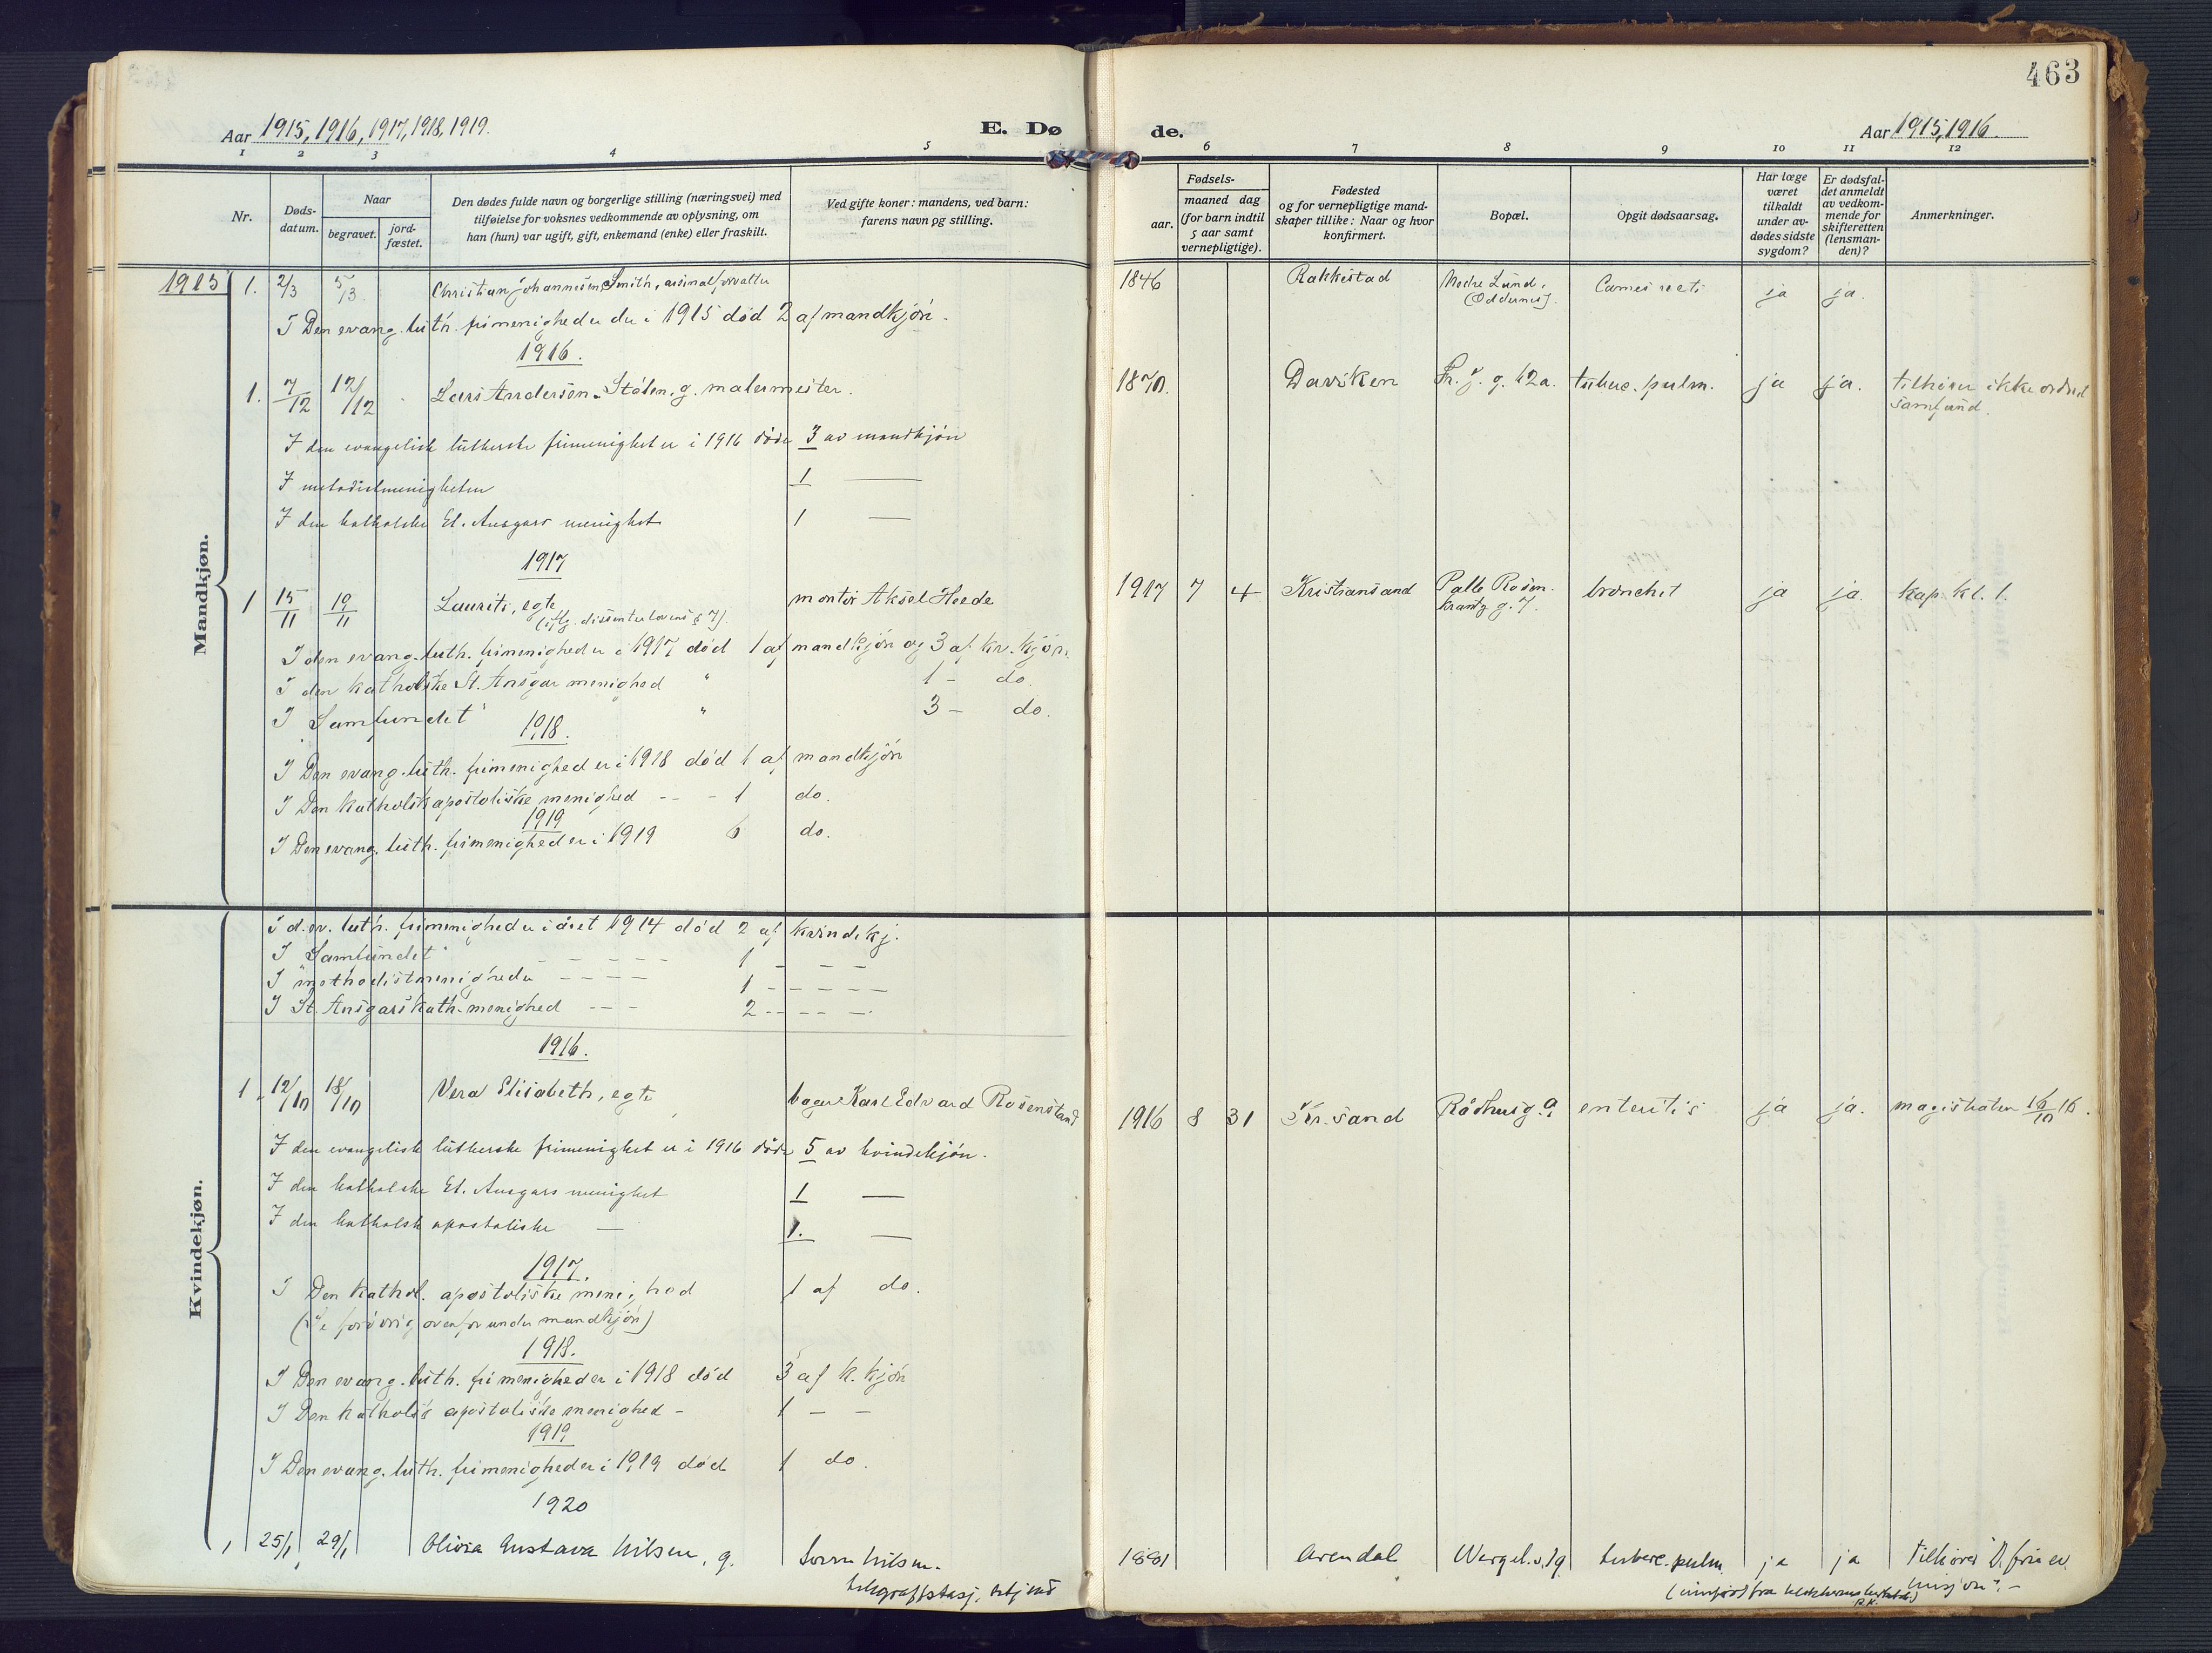 463
Aar 1915, 1916, 1917, 1918, 1919.
E. Dø
de.
Aar 1915, 1916.
1 2 3 4 5 6 7 8 9 10 11 12
Nr.
Døds-
datum.
Naar
begravet.
jord-
fæstet.
Den dødes fulde navn og borgerlige stilling (næringsvei) med
tilføielse for voksnes vedkommende av oplysning, om
han (hun) var ugift, gift, enkemand (enke) eller fraskilt.
Ved gifte koner: mandens, ved barn:
farens navn og stilling.
Fødsels-
aar.
maaned dag
(for barn indtil
5 aar samt
vernepligtige).
Fødested
og for vernepligtige mand-
skaper tillike: Naar og hvor
konfirmert.
Bopæl.
Opgit dødsaarsag.
Har læge
været
tilkaldt
under av-
dødes sidste
sygdom?
Er dødsfal-
det anmeldt
av vedkom-
mende for
skifteretten
(lensman-
den)?
Anmerkninger.
Mandkjøn.
1915 1. 2/3 5/3 Christian Johannesen Smith, arsenalforvalter 1846 Rakkestad Nedre Lund, (Oddernes). Cancer recti ja ja.
I Den evang. luth. frimenighed er i 1915 død 2 af mandkjön.
1916.
1. 7/12 12/12 Lars Andersen Stólen. g. malermester. 1870. Fr. g. 62a. tuberc. pulm. ja ja. tilhører ikke
samfund.
I den evangelisk lutherske frimenighet er i 1916 døde 3 av mandkjön
I metodistmenigheten 1 —
I den katholske St. Ansgars menighet 1 —
1917
1 15/11 19/11 Laurits, egte montør Aksel Heede 1917 7 4 Kristiansand Palle Rosen-
krantz g. 7. bronchit ja ja kap. kl. 1.
(iflg. dissenterlovens § 7).
I den evang. luth. frimenighed er i 1917 død 1 af mandkjön og 3 af kv. kjön.
I den katholske St. Ansgar menighed " 1 - do.
I "Samfundet" " 3 - do.
1918.
I Den evang. luth. frimenighed er i 1918 død 1 af mandkjön
I Den katholsk apostoliske menighed - - - 1 do.
1919
I Den evang. luth. frimenighed er i 1919 6 do.
Kvindekjøn.
I d. ev. luth. frimenighed er i året 1914 død 2 af kvindekj.
I "Samfundet" - - - - - 1 - - -
I methodistmenigheden - - - - 1 - - - - -
I St. Ansgars kath. menighed - - - 2 - - - - -
1916.
1. 12/10 18/10 Vera Elisabeth, egte bager Karl Edvard Rosenstand 1916 8 31 Kr.sand Rådhusg. 9. enteritis ja ja. magistraten 16/10 16.
I den evangelisk lutherske frimenighet er i 1916 døde 5 av kvindekjön.
I den katholske St. Ansgars menighet 1 —
I den katholsk apostoliske — 1. —
1917.
I Den kathol. apostoliske menighed 1 af do.
(Se forövrig ovenfor under mandkjön)
1918.
I Den evang. luth. frimenighed er i 1918 død 3 af k. kjön
I Den katholsk apostoliske menighed - 1 - -
1919
I Den evang. luth. frimenighed er i 1919 død 1 do.
1920
1 25/1 29/1 Olivia Gustava Nilsen, g. Nilsen. 1881 Arendal Wergel. v. 19 tuberc. pulm. ja ja Tilhører D. frie ev.
telegrafstasj. betjent
misjon". -